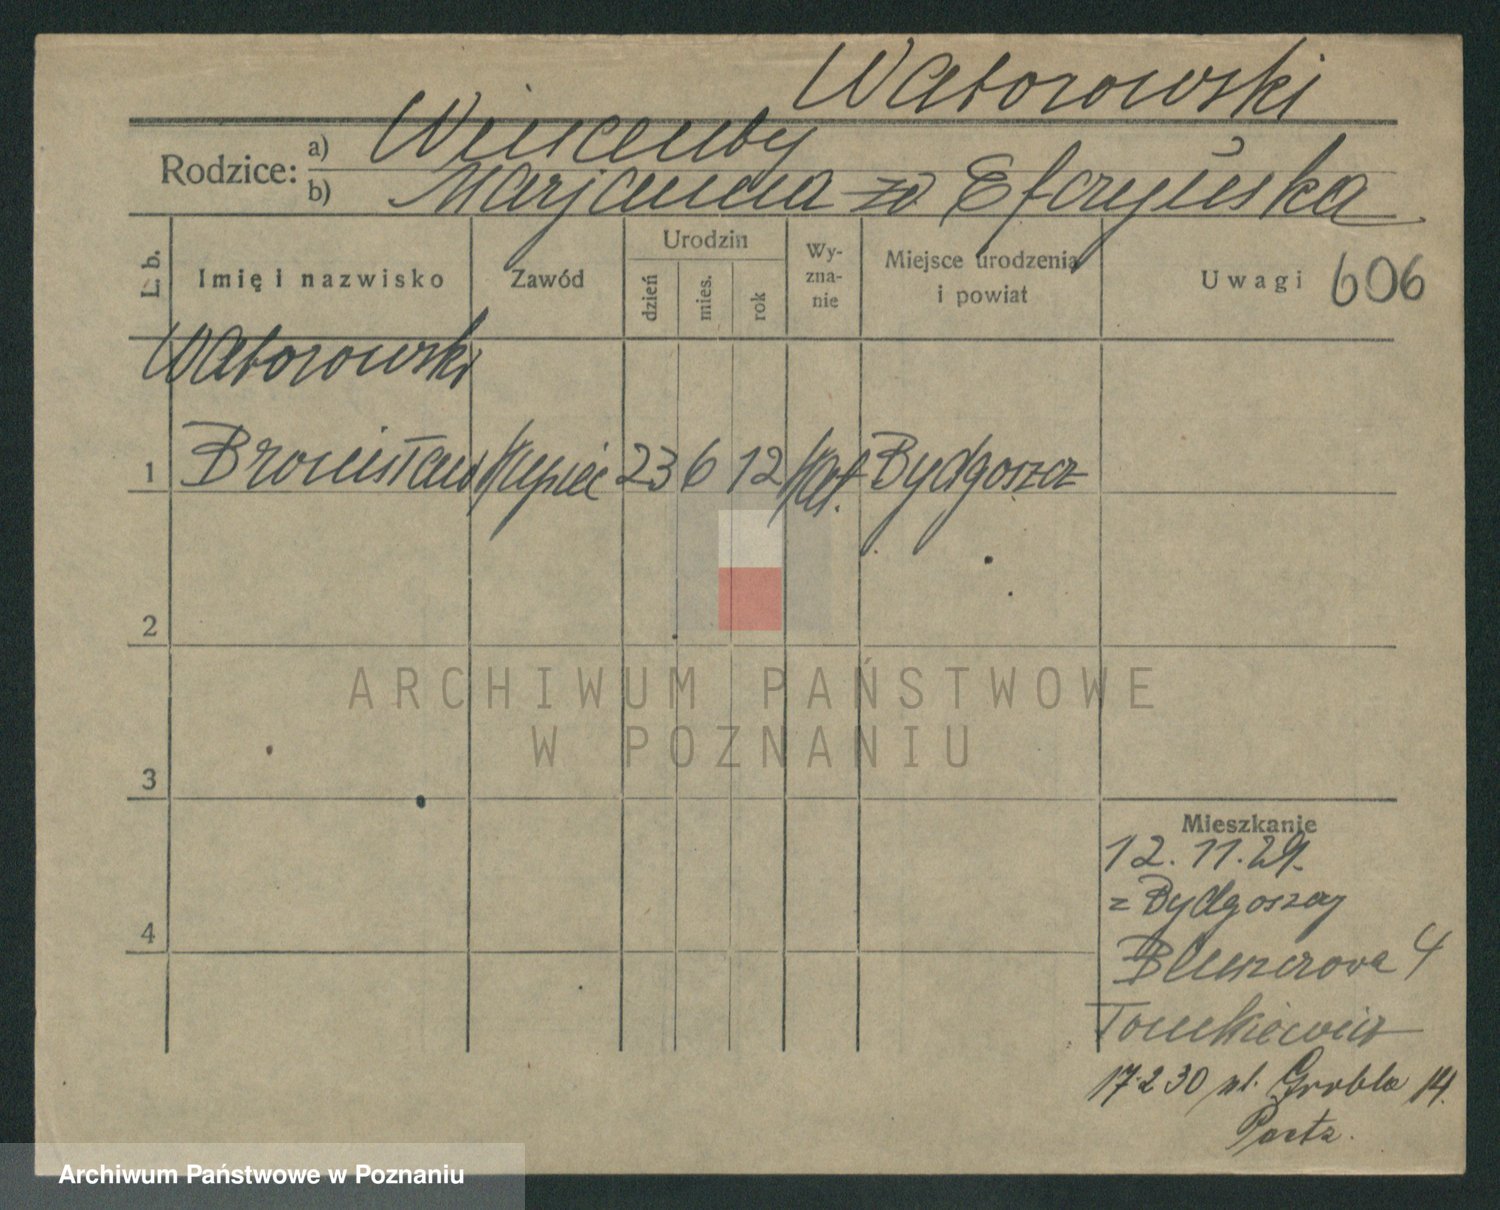 Watorowski
Rodzice: a) Wincenty
b) Marjanna zd
L. b.
Imię i nazwisko
Zawód
Urodzin
dzień
mies.
rok
Wy-
zna-
nie
Miejsce urodzenia
i powiat
Uwagi 606
Watorowski
1 Bronisław Kupiec 23 6 12 kat. Bydgoszcz
2
3
4
ARCHIWUM PAŃSTWOWE
W POZNANIU
Mieszkanie
12.11.29.
z Bydgoszczy
4
Tomkiewicz
17.2 30 ul. Grobla 14.
Archiwum Państwowe w Poznaniu